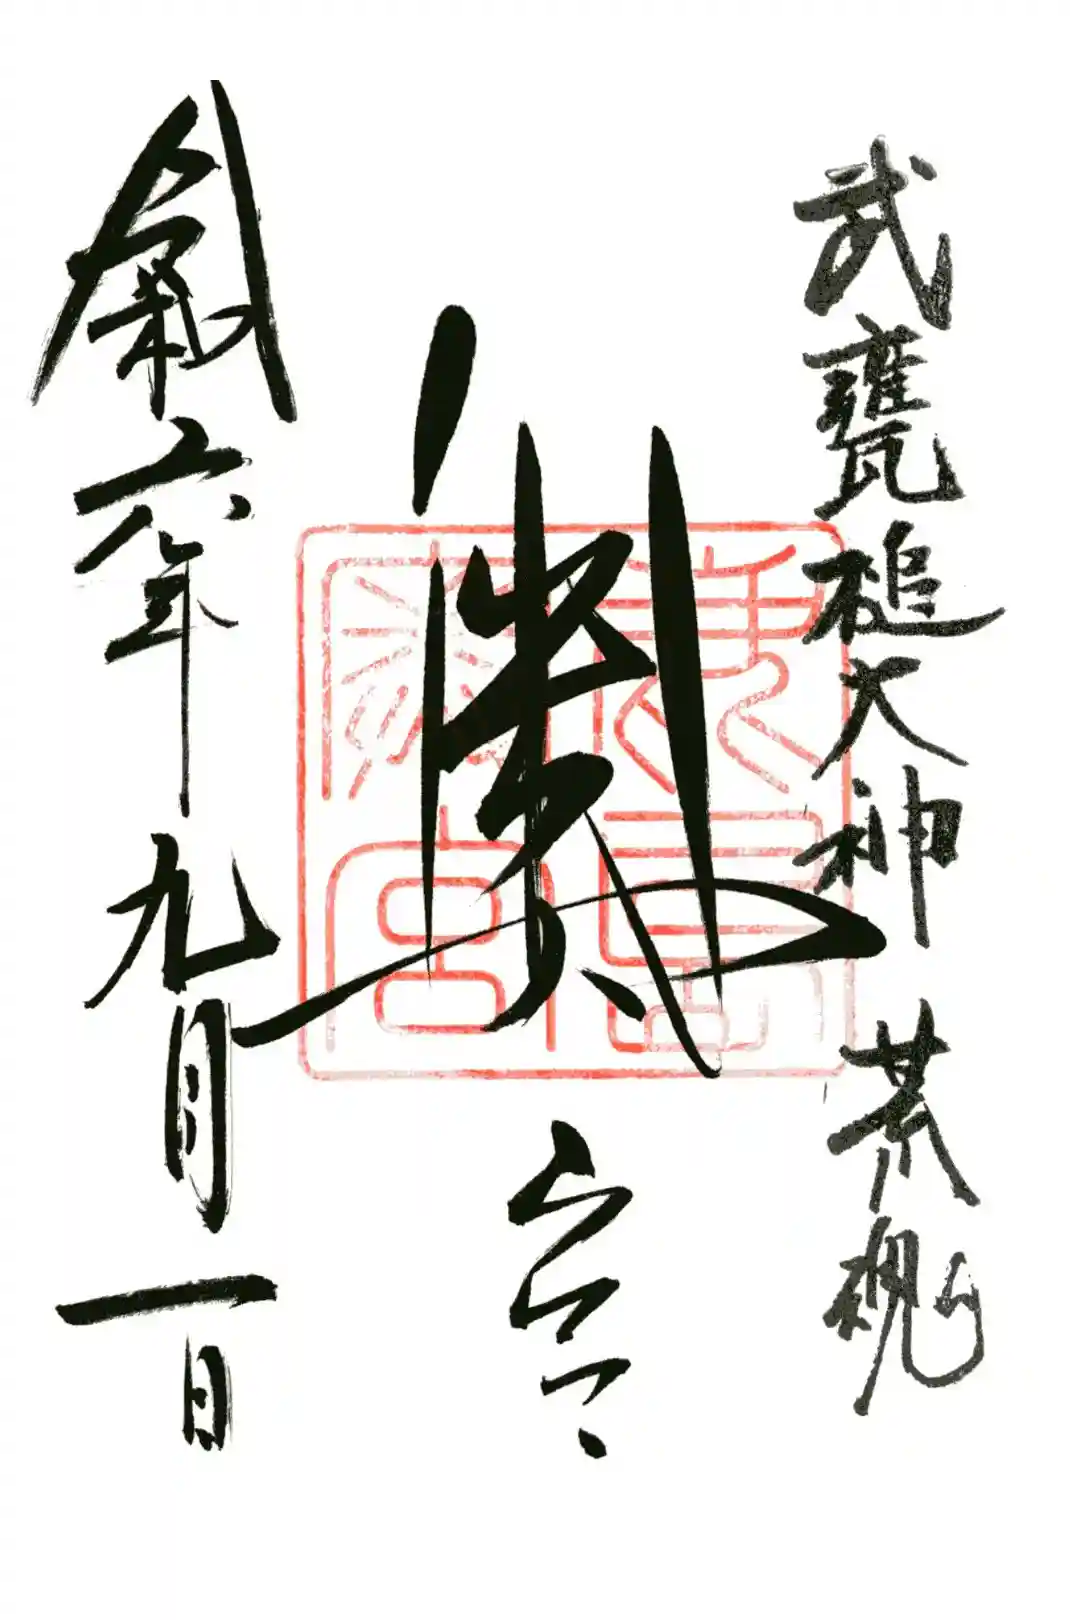 武甕槌大神 荒魂
奥宮
令和六年九月一日
鹿島
奥宮